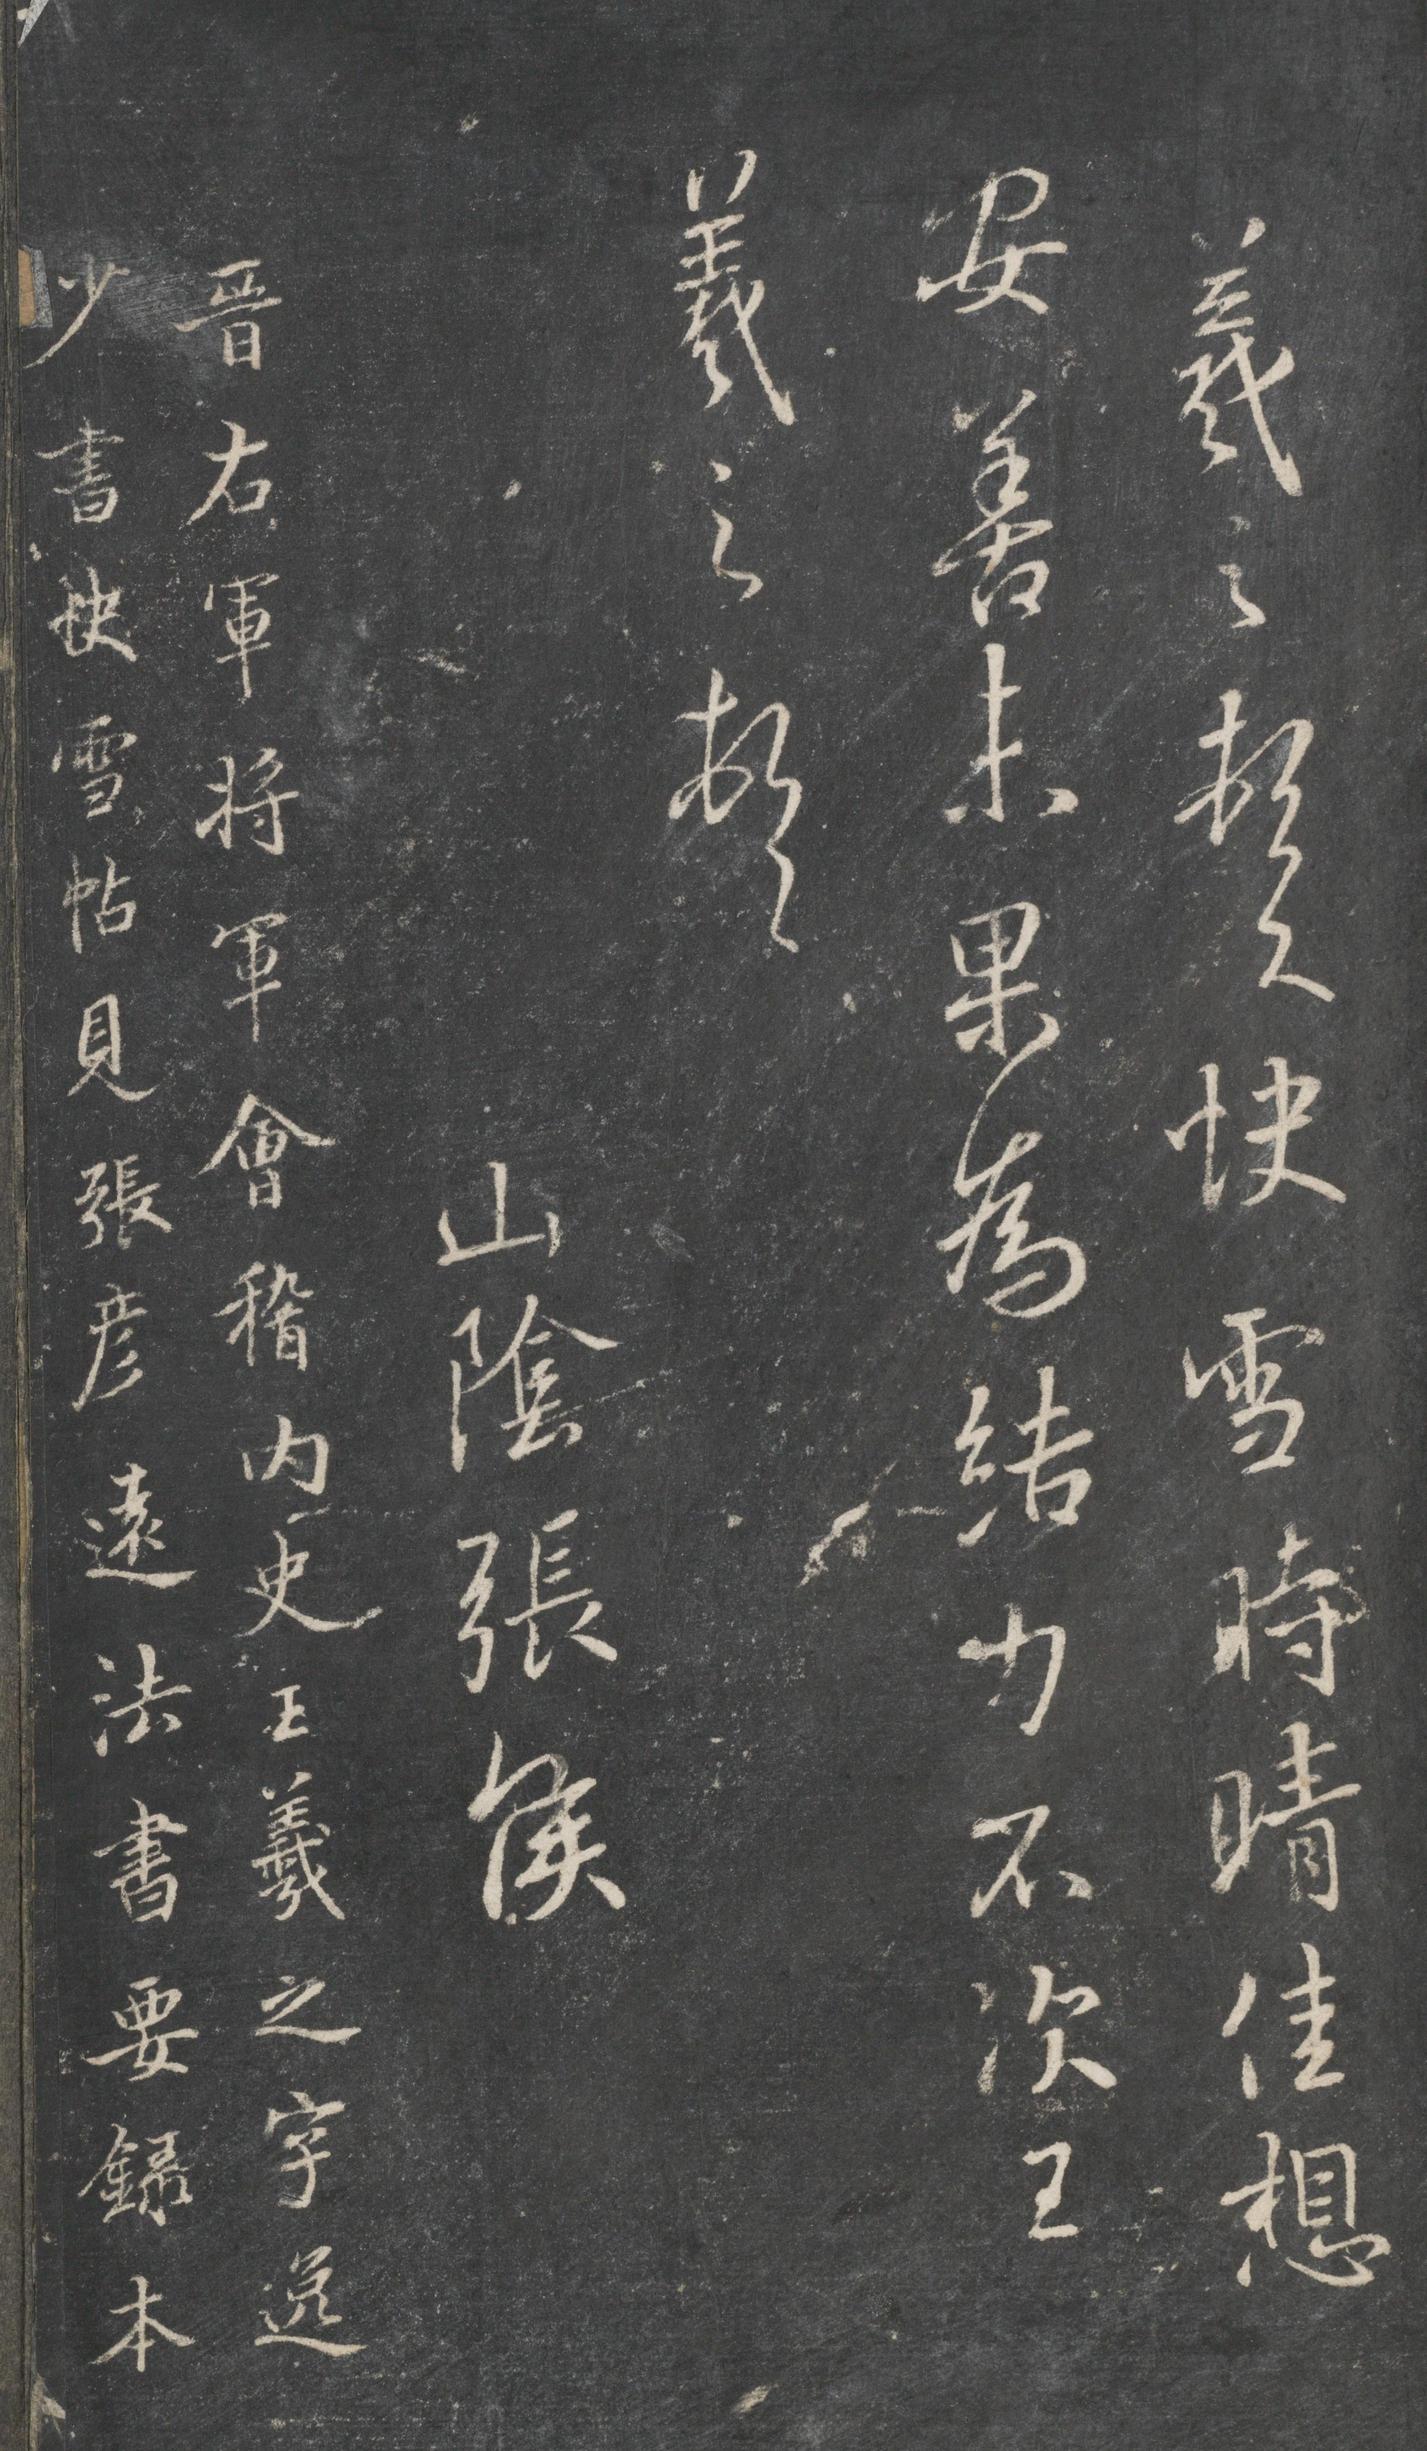 羲之頓首快雪時晴佳想
安善未果為結力不次王
羲之頓首
山陰張侯
晋右軍將軍會稽内史王羲之字逸
少書快雪帖見張彦遠法書要録本